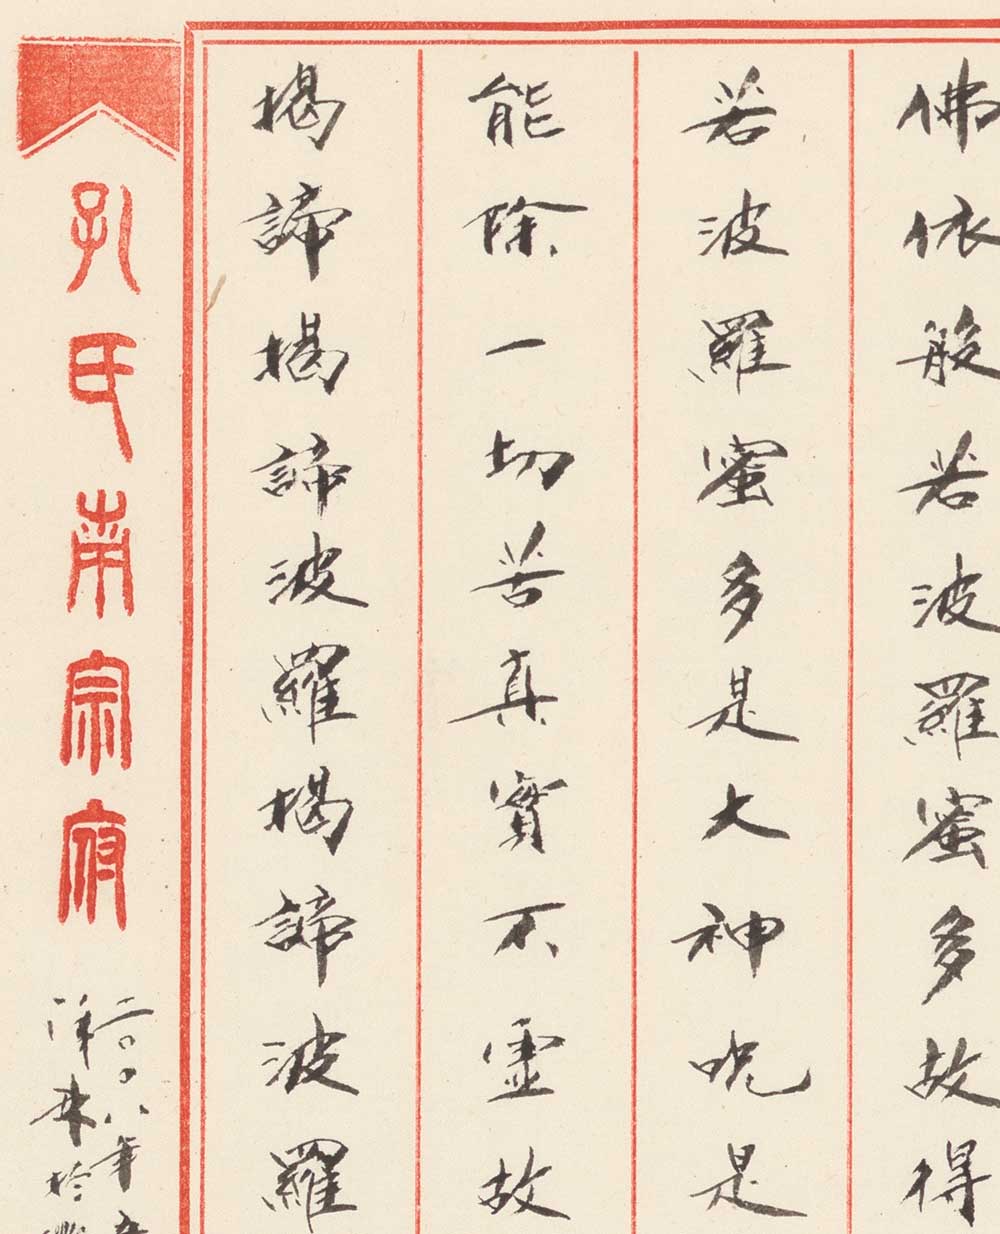 佛依般若波羅蜜多故得
若波羅蜜多是大神咒是
能除一切苦真實不虛故
揭諦揭諦波羅揭諦波羅
孔氏南宗府
二〇〇八年
於